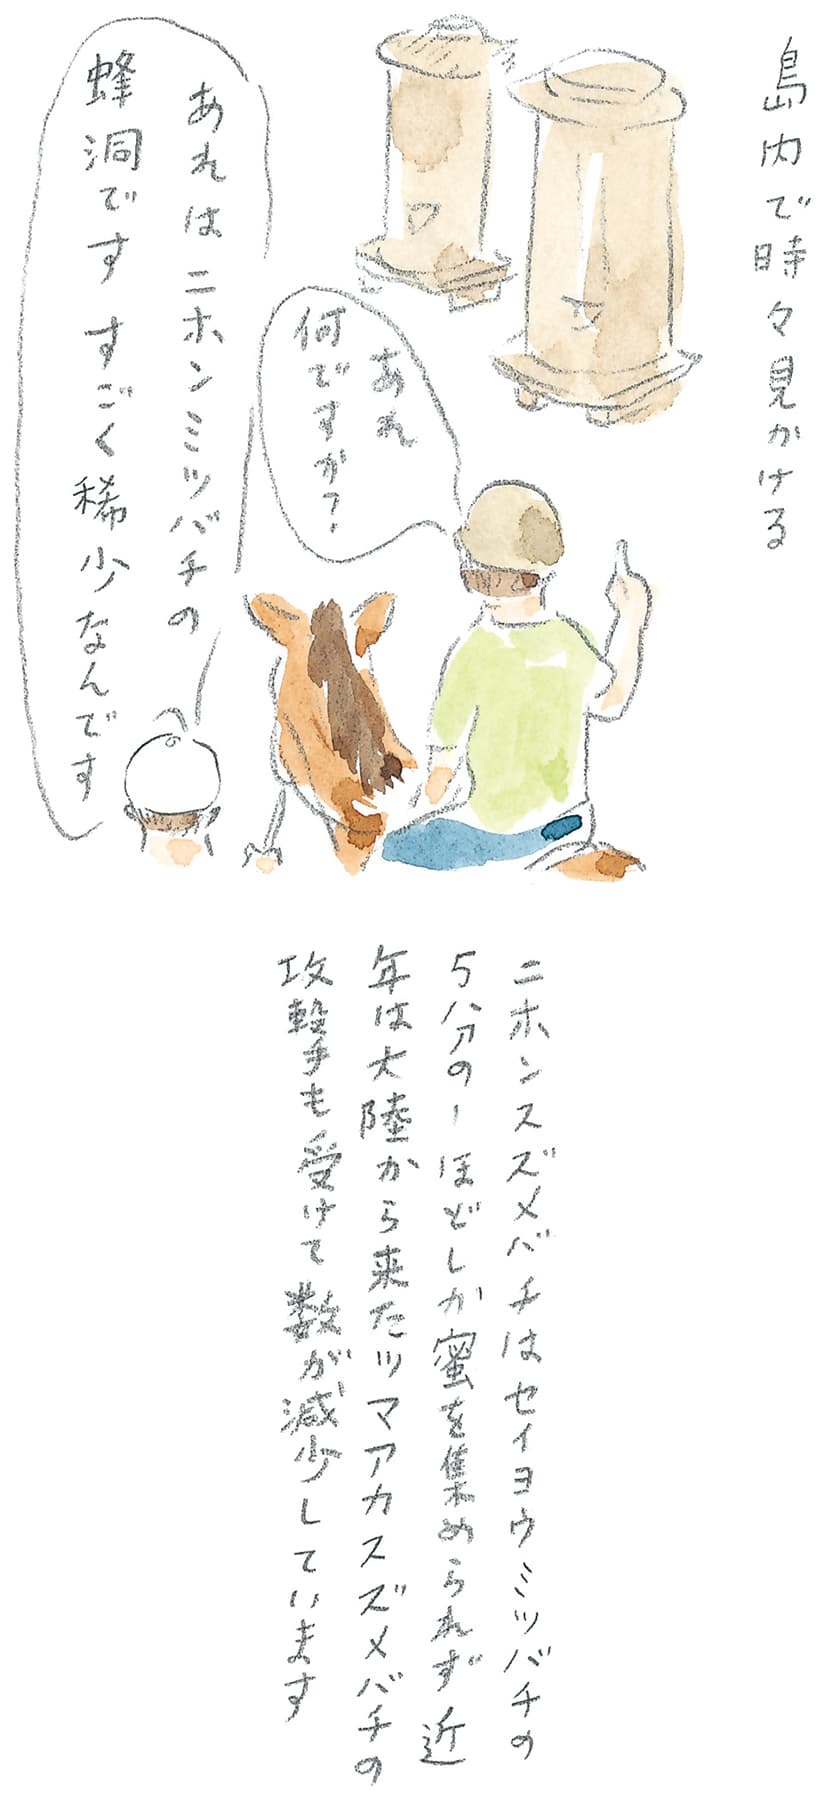 島内で時々見かける
あれ
何ですか？
あれはニホンミツバチの
蜂洞です すごく稀少なんです
ニホンスズメバチはセイヨウミツバチの
5分の1ほどしか蜜を集められず 近
年は大陸から来たツマアカスズメバチの
攻撃も受けて数が減少しています